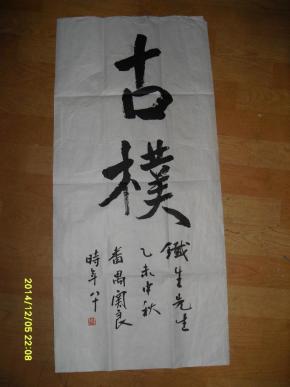 古樸
鐵生先生
乙未中秋
番禺関良
時年八十
2014/12/05 22:08